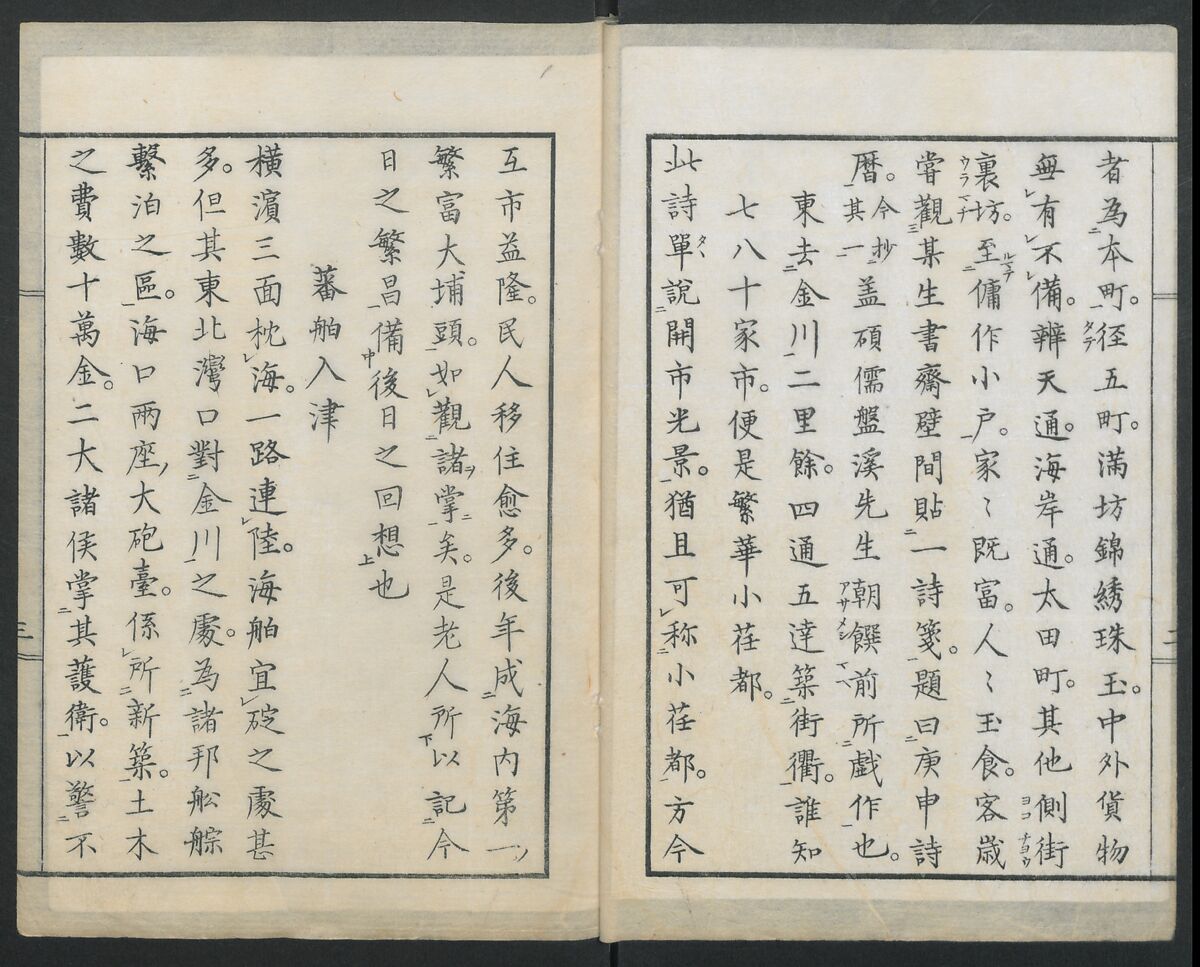 者為本町。径五町。満坊錦綉珠玉。中外貨物
無有不備。辨天通。海岸通。太田町。其他側街
裏坊。至傭作小戸。家〻既富。人〻玉食。客歳
甞觀某生書齋壁間貼一詩箋。題曰庚申詩
暦。今抄其一。盖碩儒盤溪先生朝饌前所戯作也。
東去金川二里餘。四通五達築街衢。誰知
七八十家市。便是繁華小荏都。
此詩單說開市光景。猶且可称小荏都。方今
互市益隆。民人移住愈多。後年成海内第一
繁富大埔頭。如觀諸掌矣。是老人所以記今
日之繁昌備後日之回想也
蕃舶入津
橫濱三面枕海。一路連陸。海舶宜碇之處甚
多。但其東北灣口對金川之處。為諸邦舩艅
繫泊之區。海口兩座大砲臺。係所新築。土木
之費數十萬金。二大諸侯掌其護衛。以警不
三